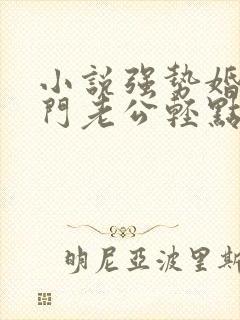 小説強勢婚
門老公輕點
明尼亞波里斯